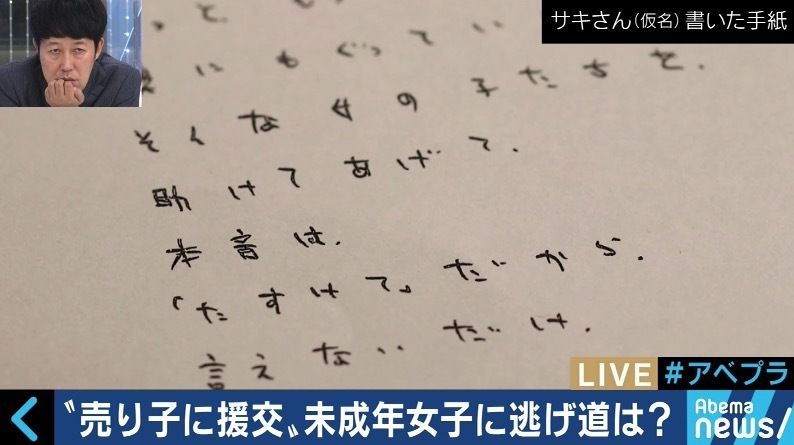 サキさん（仮名）書いた手紙
にもぐってい
そんな女の子たちを.
助けてあげて.
本音は.
「たすけて」だから.
言えないだけ.
LIVE
#アベプラ
〝売り子に援交〟未成年女子に逃げ道は？
Abema
news/